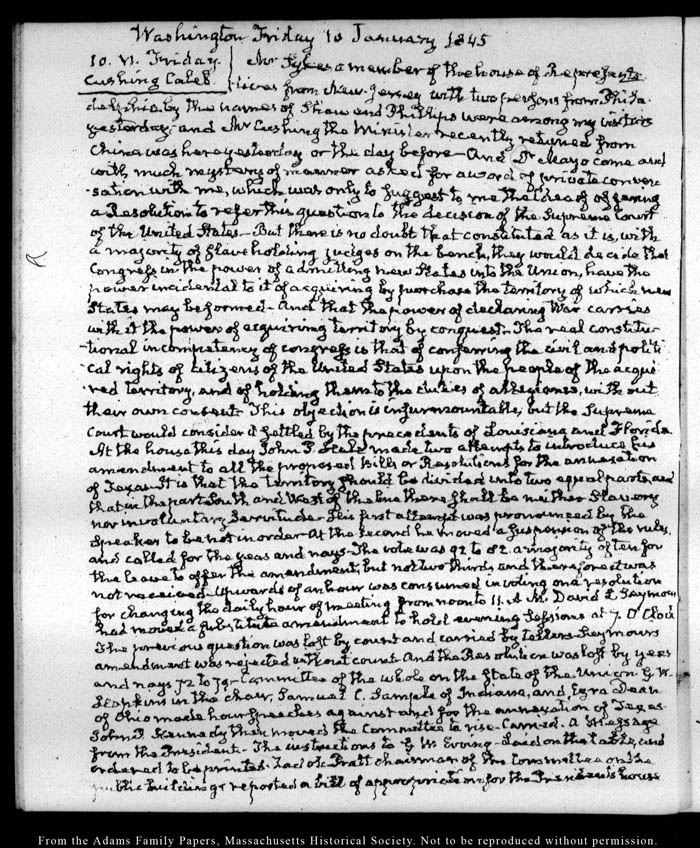 Washington Friday 10 January 1845
10. VI. Friday.
Cushing Caleb
Mr Sykes a member of the house of Representa-
tives from New-Jersey with two persons from Phila-
delphia by the names of Shaw and Phillips were among my visitors
yesterday; and Mr Cushing the Minister recently returned from
China was here yesterday or the day before— And Dr Mayo came and
with much mystery of manner asked for a word of private conver-
sation with me, which was only to suggest to me the idea of offering
a Resolution to refer this question to the decision of the Supreme Court
of the United States— But there is no doubt that constituted as it is, with
a majority of slave holding judges on the bench, they would decide that
Congress in the power of admitting new States into the Union, have the
power incidental to it of acquiring by purchase the territory of which new
States may be formed— And that the power of declaring War carries
with it the power of acquiring territory by conquest. The real constitu-
tional incompetency of Congress is that of conferring the civil and politi-
cal rights of citizens of the United States upon the people of the acqui-
red territory, and of holding them to the duties of allegiance, without
their own consent. This objection is insurmountable, but the Supreme
Court would consider it settled by the precedents of Louisiana and Florida.
At the house this day John P. Hale made two attempts to introduce his
amendment to all the proposed Bills or Resolutions for the annexation
of Texas. It is that the territory should be divided into two equal parts, and
that in the part South and West of the line there shall be neither Slavery
nor involuntary Servitude. His first attempt was pronounced by the
Speaker to be not in order. At the second he moved a suspension of the rules,
and called for the yeas and nays. The vote was 92 to 82 a majority of ten for
the leave to offer the amendment, but not two thirds and therefore it was
not received. Upwards of an hour was consumed in voting on a resolution
for changing the daily hour of meeting from noon to 11. A.M. David L. Seymour
had moved a substitute amendment to hold evening Sessions at 7. O'Clock
The previous question was lost by count and carried by tellers. Seymour's
amendment was rejected without count. And the Resolution was lost by yeas
and nays 72 to 79— Committee of the whole on the state of the Union G. W.
Hopkins in the chair, Samuel C. Sample of Indiana, and Ezra Dean
of Ohio made hour speeches against and for the annexation of Texas.
John P. Kennedy then moved the Committee to rise— Carried. A Message
from the President— The instructions to G. W. Erving— Laid on the table, and
ordered to be printed. Zadok Pratt chairman of the Committee on the
public buildings reported a bill of appropriation for the President's house
From the Adams Family Papers, Massachusetts Historical Society. Not to be reproduced without permission.